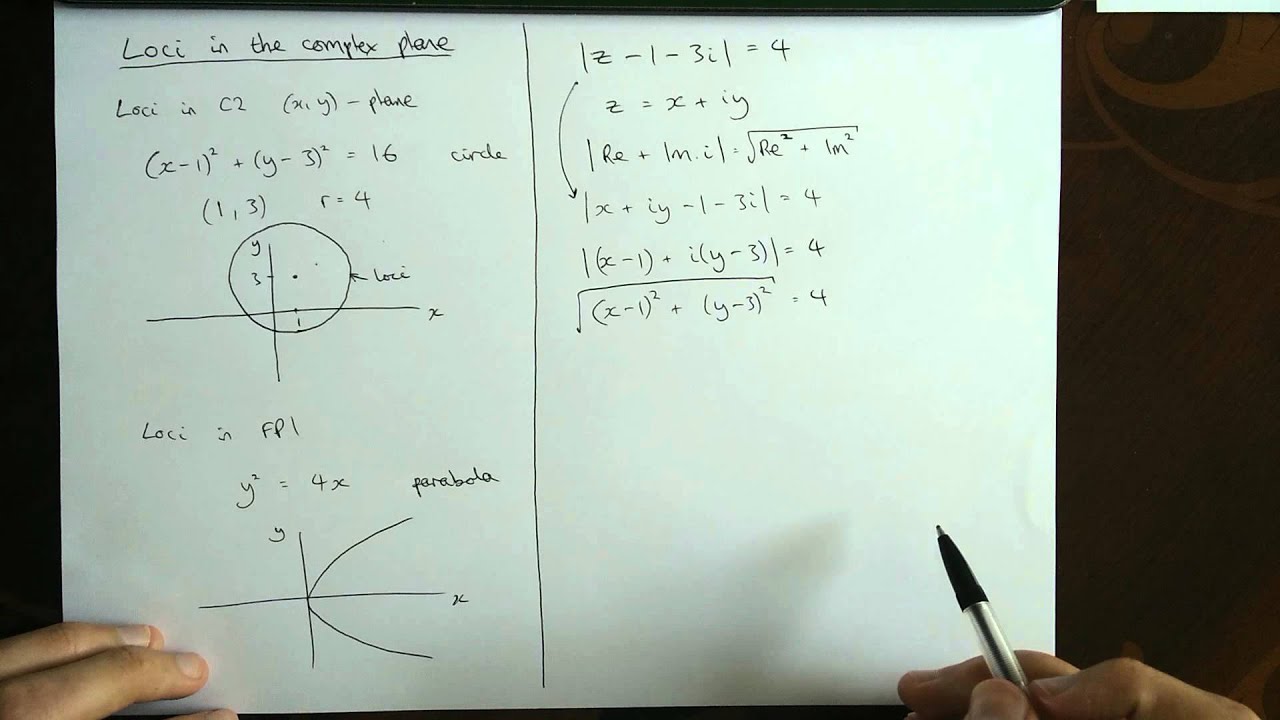 Loci in the complex plane
Loci in C2 (x,y) - plane
(x-1)² + (y-3)² = 16 circle
(1,3) r = 4
y
3
← loci
x
1
Loci in FP1
y² = 4x parabola
y
x
|z - 1 - 3i| = 4
z = x + iy
|Re + Im.i| = √(Re² + Im²)
|x + iy - 1 - 3i| = 4
|(x-1) + i(y-3)| = 4
√((x-1)² + (y-3)²) = 4